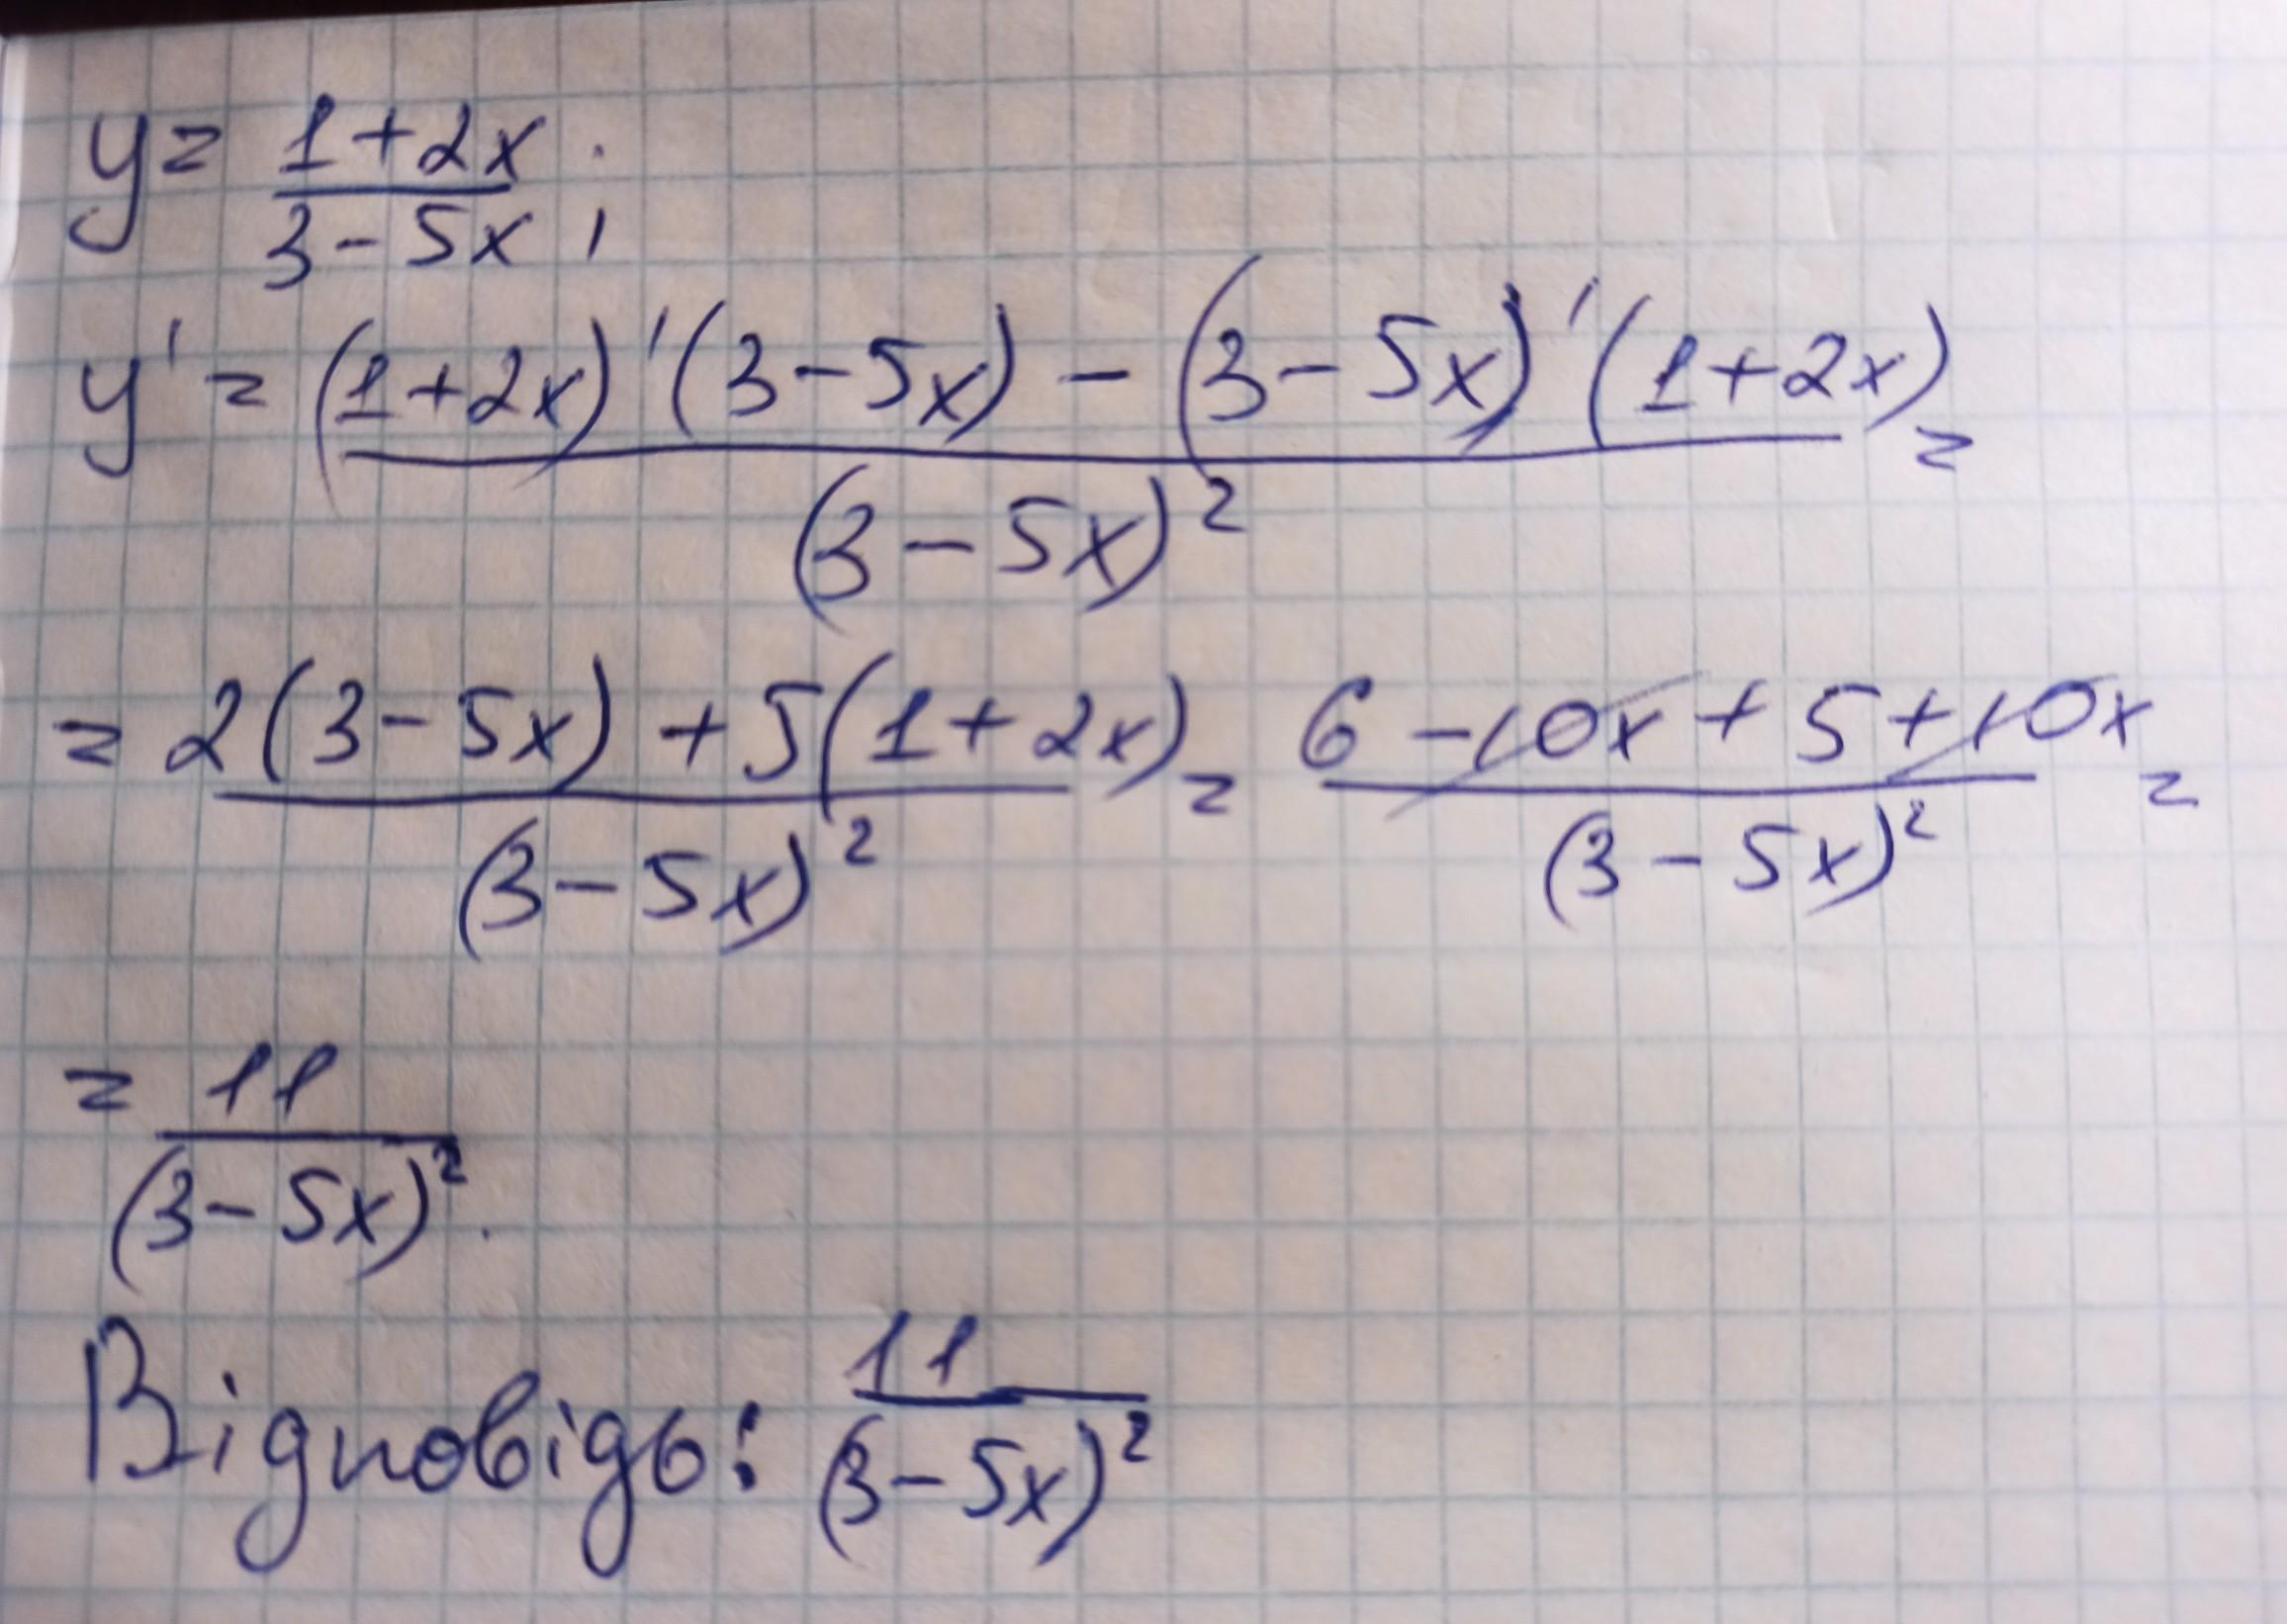 y = (1+2x)/(3-5x);
y' = ((1+2x)'(3-5x) - (3-5x)'(1+2x))/(3-5x)² =
= (2(3-5x) + 5(1+2x))/(3-5x)² = (6 - 10x + 5 + 10x)/(3-5x)² =
= 11/(3-5x)².
Відповідь: 11/(3-5x)²